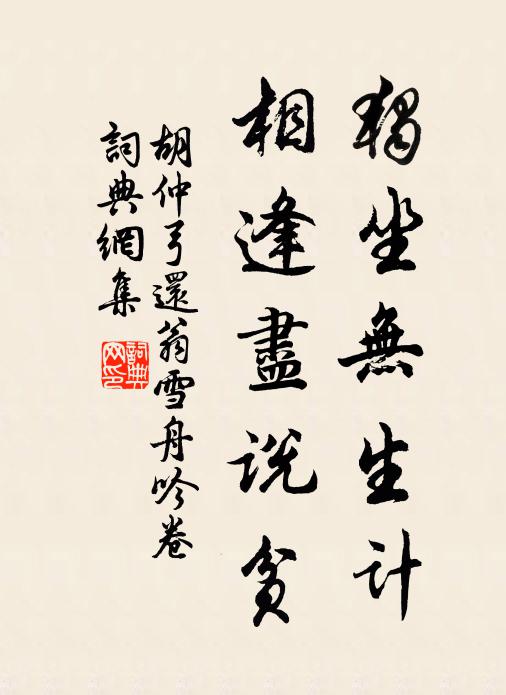 獨坐無生計
相逢盡说貧
胡仲弓還翁雪舟吟卷
詞典網集
詞典網印